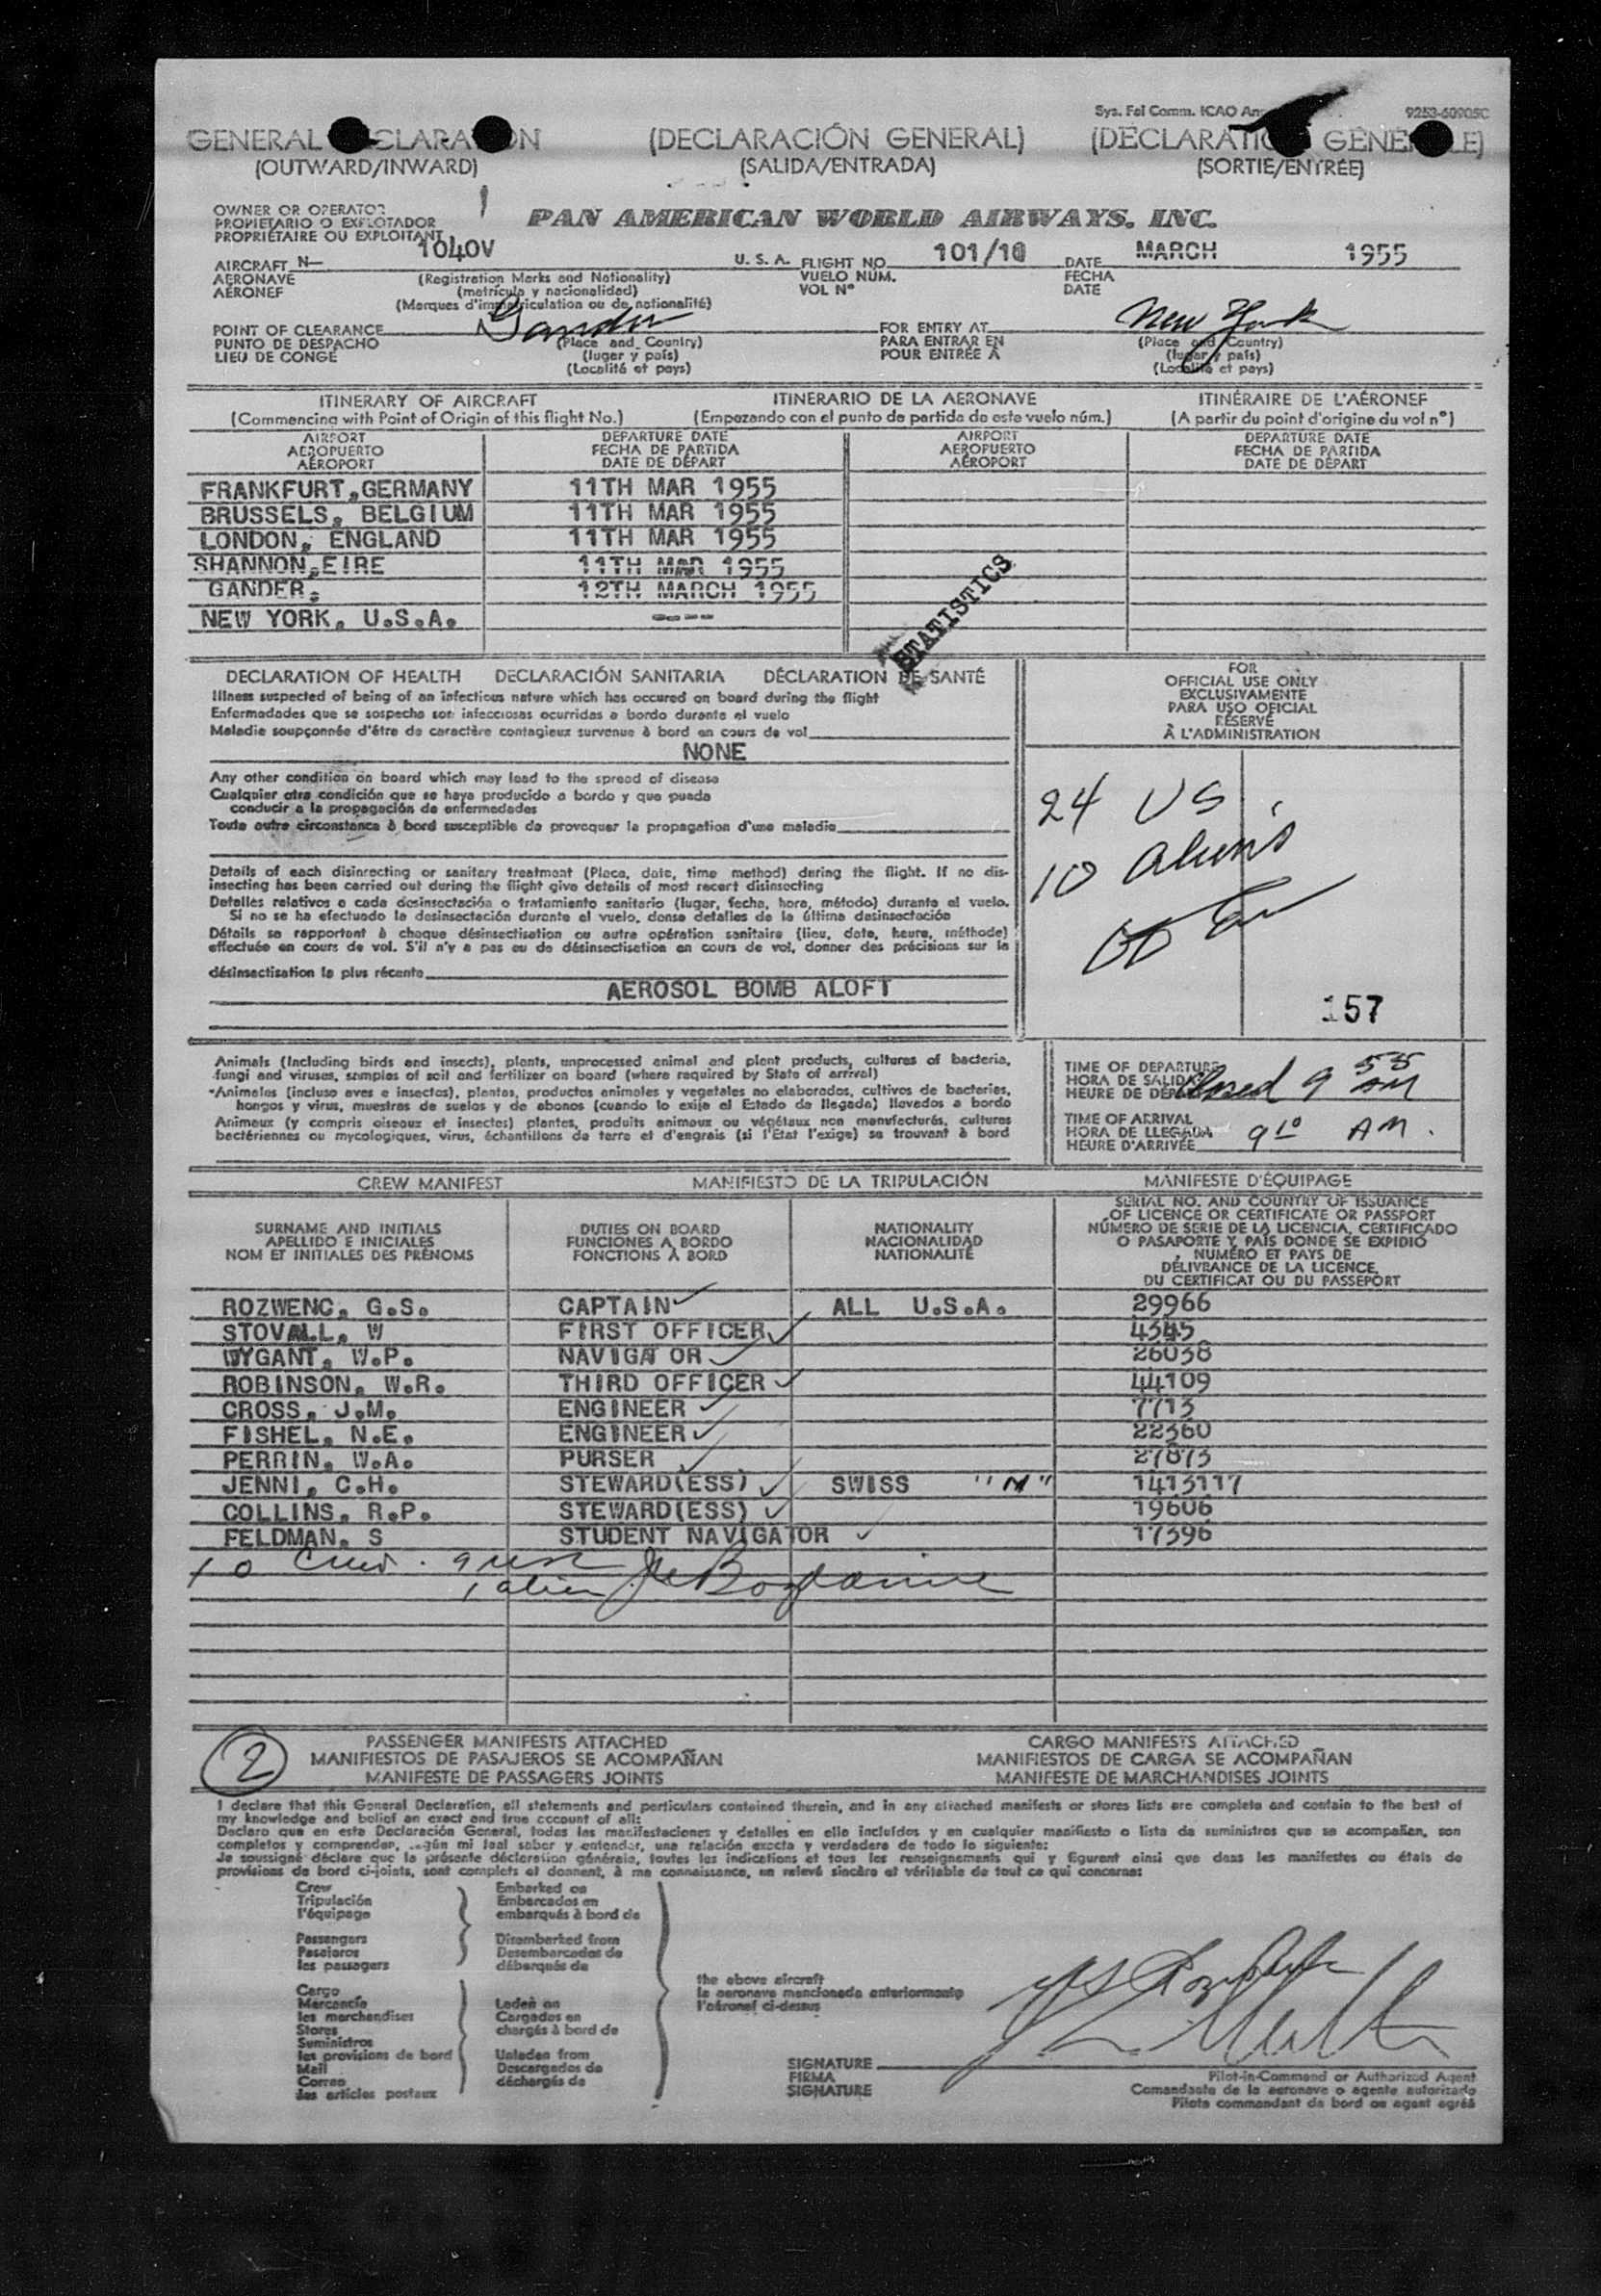 Sys. Fal Comm. ICAO 9253-60905C
GENERAL (DECLARACIÓN GENERAL)
(OUTWARD/INWARD) (SALIDA/ENTRADA) (SORTIE/ENTRÉE)
OWNER OR OPERATOR
PROPIETARIO O EXPLOTADOR PAN AMERICAN WORLD AIRWAYS, INC.
PROPRIÉTAIRE OU EXPLOITANT
AIRCRAFT N— 1040V U. S. A. FLIGHT NO. 101/10 DATE MARCH 1955
AERONAVE (Registration Marks and Nationality) VUELO NÚM. FECHA
AÉRONEF (matrícula y nacionalidad) VOL N° DATE
(Marques d'immatriculation ou de nationalité)
POINT OF CLEARANCE Gander FOR ENTRY AT New York
PUNTO DE DESPACHO (Place and Country) PARA ENTRAR EN (Place and Country)
LIEU DE CONGÉ (luger y país) POUR ENTRÉE À (lugar y país)
(Localité et pays) (Localité et pays)
ITINERARY OF AIRCRAFT ITINERARIO DE LA AERONAVE ITINÉRAIRE DE L'AÉRONEF
(Commencing with Point of Origin of this flight No.) (Empezando con el punto de partida de este vuelo núm.) (A partir du point d'origine du vol n°)
AIRPORT DEPARTURE DATE AIRPORT DEPARTURE DATE
AEROPUERTO FECHA DE PARTIDA AEROPUERTO FECHA DE PARTIDA
AÉROPORT DATE DE DÉPART AÉROPORT DATE DE DÉPART
FRANKFURT,GERMANY 11TH MAR 1955
BRUSSELS, BELGIUM 11TH MAR 1955
LONDON, ENGLAND 11TH MAR 1955
SHANNON,EIRE 11TH MAR 1955
GANDER, 12TH MARCH 1955
NEW YORK, U.S.A. ----
STATISTICS
DECLARATION OF HEALTH DECLARACIÓN SANITARIA DÉCLARATION DE SANTÉ
Illness suspected of being of an infectious nature which has occured on board during the flight
Enfermedades que se sospecha son infecciosas ocurridas a bordo durante el vuelo
Maladie soupçonnée d'être de caractère contagieux survenue à bord en cours de vol
NONE
Any other condition on board which may lead to the spread of disease
Cualquier otra condición que se haya producido a bordo y que pueda
conducir a la propagación de enfermedades
Toute autre circonstance à bord susceptible de provoquer la propagation d'une maladie
Details of each disinsecting or sanitary treatment (Place, date, time method) during the flight. If no dis-
insecting has been carried out during the flight give details of most recent disinsecting
Detalles relativos a cada desinsectación o tratamiento sanitario (lugar, fecha, hora, método) durante el vuelo.
Si no se ha efectuado la desinsectación durante el vuelo, dense detalles de la última desinsectación
Détails se rapportant à chaque désinsectisation ou autre opération sanitaire (lieu, date, heure, méthode)
effectuée en cours de vol. S'il n'y a pas eu de désinsectisation en cours de vol, donner des précisions sur la
désinsectisation la plus récente
AEROSOL BOMB ALOFT
FOR
OFFICIAL USE ONLY
EXCLUSIVAMENTE
PARA USO OFICIAL
RÉSERVÉ
À L'ADMINISTRATION
24 US
10 aliens
157
Animals (Including birds and insects), plants, unprocessed animal and plant products, cultures of bacteria,
fungi and viruses, samples of soil and fertilizer on board (where required by State of arrival)
Animales (incluso aves e insectos), plantas, productos animales y vegetales no elaborados, cultivos de bacterias,
hongos y virus, muestras de suelos y de abonos (cuando lo exija el Estado de llegada) llevados a bordo
Animaux (y compris oiseaux et insectes) plantes, produits animaux ou végétaux non manufacturés, cultures
bactériennes ou mycologiques, virus, échantillons de terre et d'engrais (si l'État l'exige) se trouvant à bord
TIME OF DEPARTURE
HORA DE SALIDA Closed 9 55 AM
HEURE DE
TIME OF ARRIVAL
HORA DE LLEGADA 9 10 AM.
HEURE D'ARRIVÉE
CREW MANIFEST MANIFIESTO DE LA TRIPULACIÓN MANIFESTE D'ÉQUIPAGE
SURNAME AND INITIALS DUTIES ON BOARD NATIONALITY SERIAL NO. AND COUNTRY OF ISSUANCE
APELLIDO E INICIALES FUNCIONES A BORDO NACIONALIDAD OF LICENCE OR CERTIFICATE OR PASSPORT
NOM ET INITIALES DES PRÉNOMS FONCTIONS À BORD NATIONALITÉ NÚMERO DE SERIE DE LA LICENCIA, CERTIFICADO
O PASAPORTE Y PAÍS DONDE SE EXPIDIÓ
NUMÉRO ET PAYS DE
DÉLIVRANCE DE LA LICENCE,
DU CERTIFICAT OU DU PASSEPORT
ROZWENC, G.S. CAPTAIN ALL U.S.A. 29966
STOVALL, W FIRST OFFICER 4345
WYGANT, W.P. NAVIGATOR 26038
ROBINSON, W.R. THIRD OFFICER 44109
CROSS, J.M. ENGINEER 7713
FISHEL, N.E. ENGINEER 22360
PERRIN, W.A. PURSER 27873
JENNI, C.H. STEWARD(ESS) SWISS "M" 1413117
COLLINS, R.P. STEWARD(ESS) 19606
FELDMAN, S STUDENT NAVIGATOR 17396
10 Crew. 9
1 alien
2 PASSENGER MANIFESTS ATTACHED CARGO MANIFESTS ATTACHED
MANIFIESTOS DE PASAJEROS SE ACOMPAÑAN MANIFIESTOS DE CARGA SE ACOMPAÑAN
MANIFESTE DE PASSAGERS JOINTS MANIFESTE DE MARCHANDISES JOINTS
I declare that this General Declaration, all statements and particulars contained therein, and in any attached manifests or stores lists are complete and contain to the best of
my knowledge and belief an exact and true account of all:
Declaro que en esta Declaración General, todas las manifestaciones y detalles en ella incluídos y en cualquier manifiesto o lista de suministros que se acompañan, son
completos y comprenden, según mi leal saber y entender, una relación exacta y verdadera de todo lo siguiente:
Je soussigné déclare que la présente déclaration générale, toutes les indications et tous les renseignements qui y figurent ainsi que dans les manifestes ou états de
provisions de bord ci-joints, sont complets et donnent, à ma connaissance, un relevé sincère et véritable de tout ce qui concerne:
Crew Embarked on
Tripulación Embarcados en
l'équipage embarqués à bord de
Passengers Disembarked from
Pasajeros Desembarcados de
les passagers débarqués de
Cargo
Mercancía Laden on
les marchandises Cargados en
Stores chargés à bord de
Suministros
les provisions de bord Unladen from
Mail Descargados de
Correo déchargés de
les articles postaux
the above aircraft
la aeronave mencionada anteriormente
l'aéronef ci-dessus
SIGNATURE
FIRMA
SIGNATURE
Pilot-in-Command or Authorized Agent
Comandante de la aeronave o agente autorizado
Pilote commandant de bord ou agent agréé